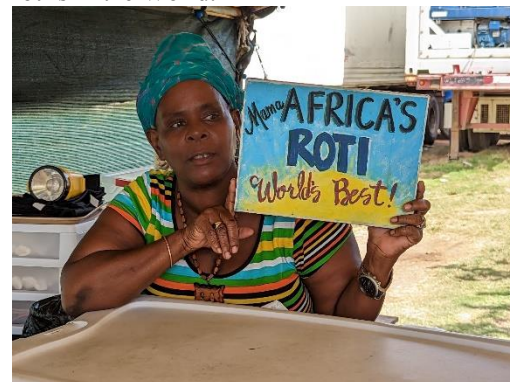 Mama AFRICA'S
ROTI
World's Best!